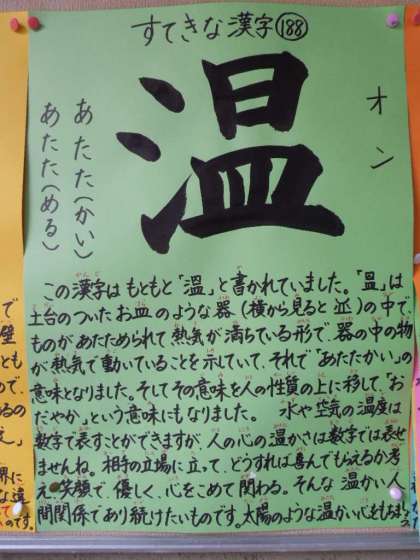 すてきな漢字188
温
オン
あたた(かい)
あたた(める)
この漢字はもともと「溫」と書かれていました。「昷」は
土台のついたお皿のような器(横から見ると 皿)の中で、
ものがあたためられて熱気が満ちている形で、器の中の物
が熱気で動いていることを示していて、それで「あたたかい」の
意味となりました。そしてその意味を人の性質の上に移して、「お
だやか」という意味にもなりました。 水や空気の温度は
数字で表すことができますが、人の心の温かさは数字では表せ
ませんね。相手の立場に立って、どうすれば喜んでもらえるか考
え、笑顔で、優しく、心をこめて関わる。そんな温かい人
間関係であり続けたいものです。太陽のような温かい心をもちましょう